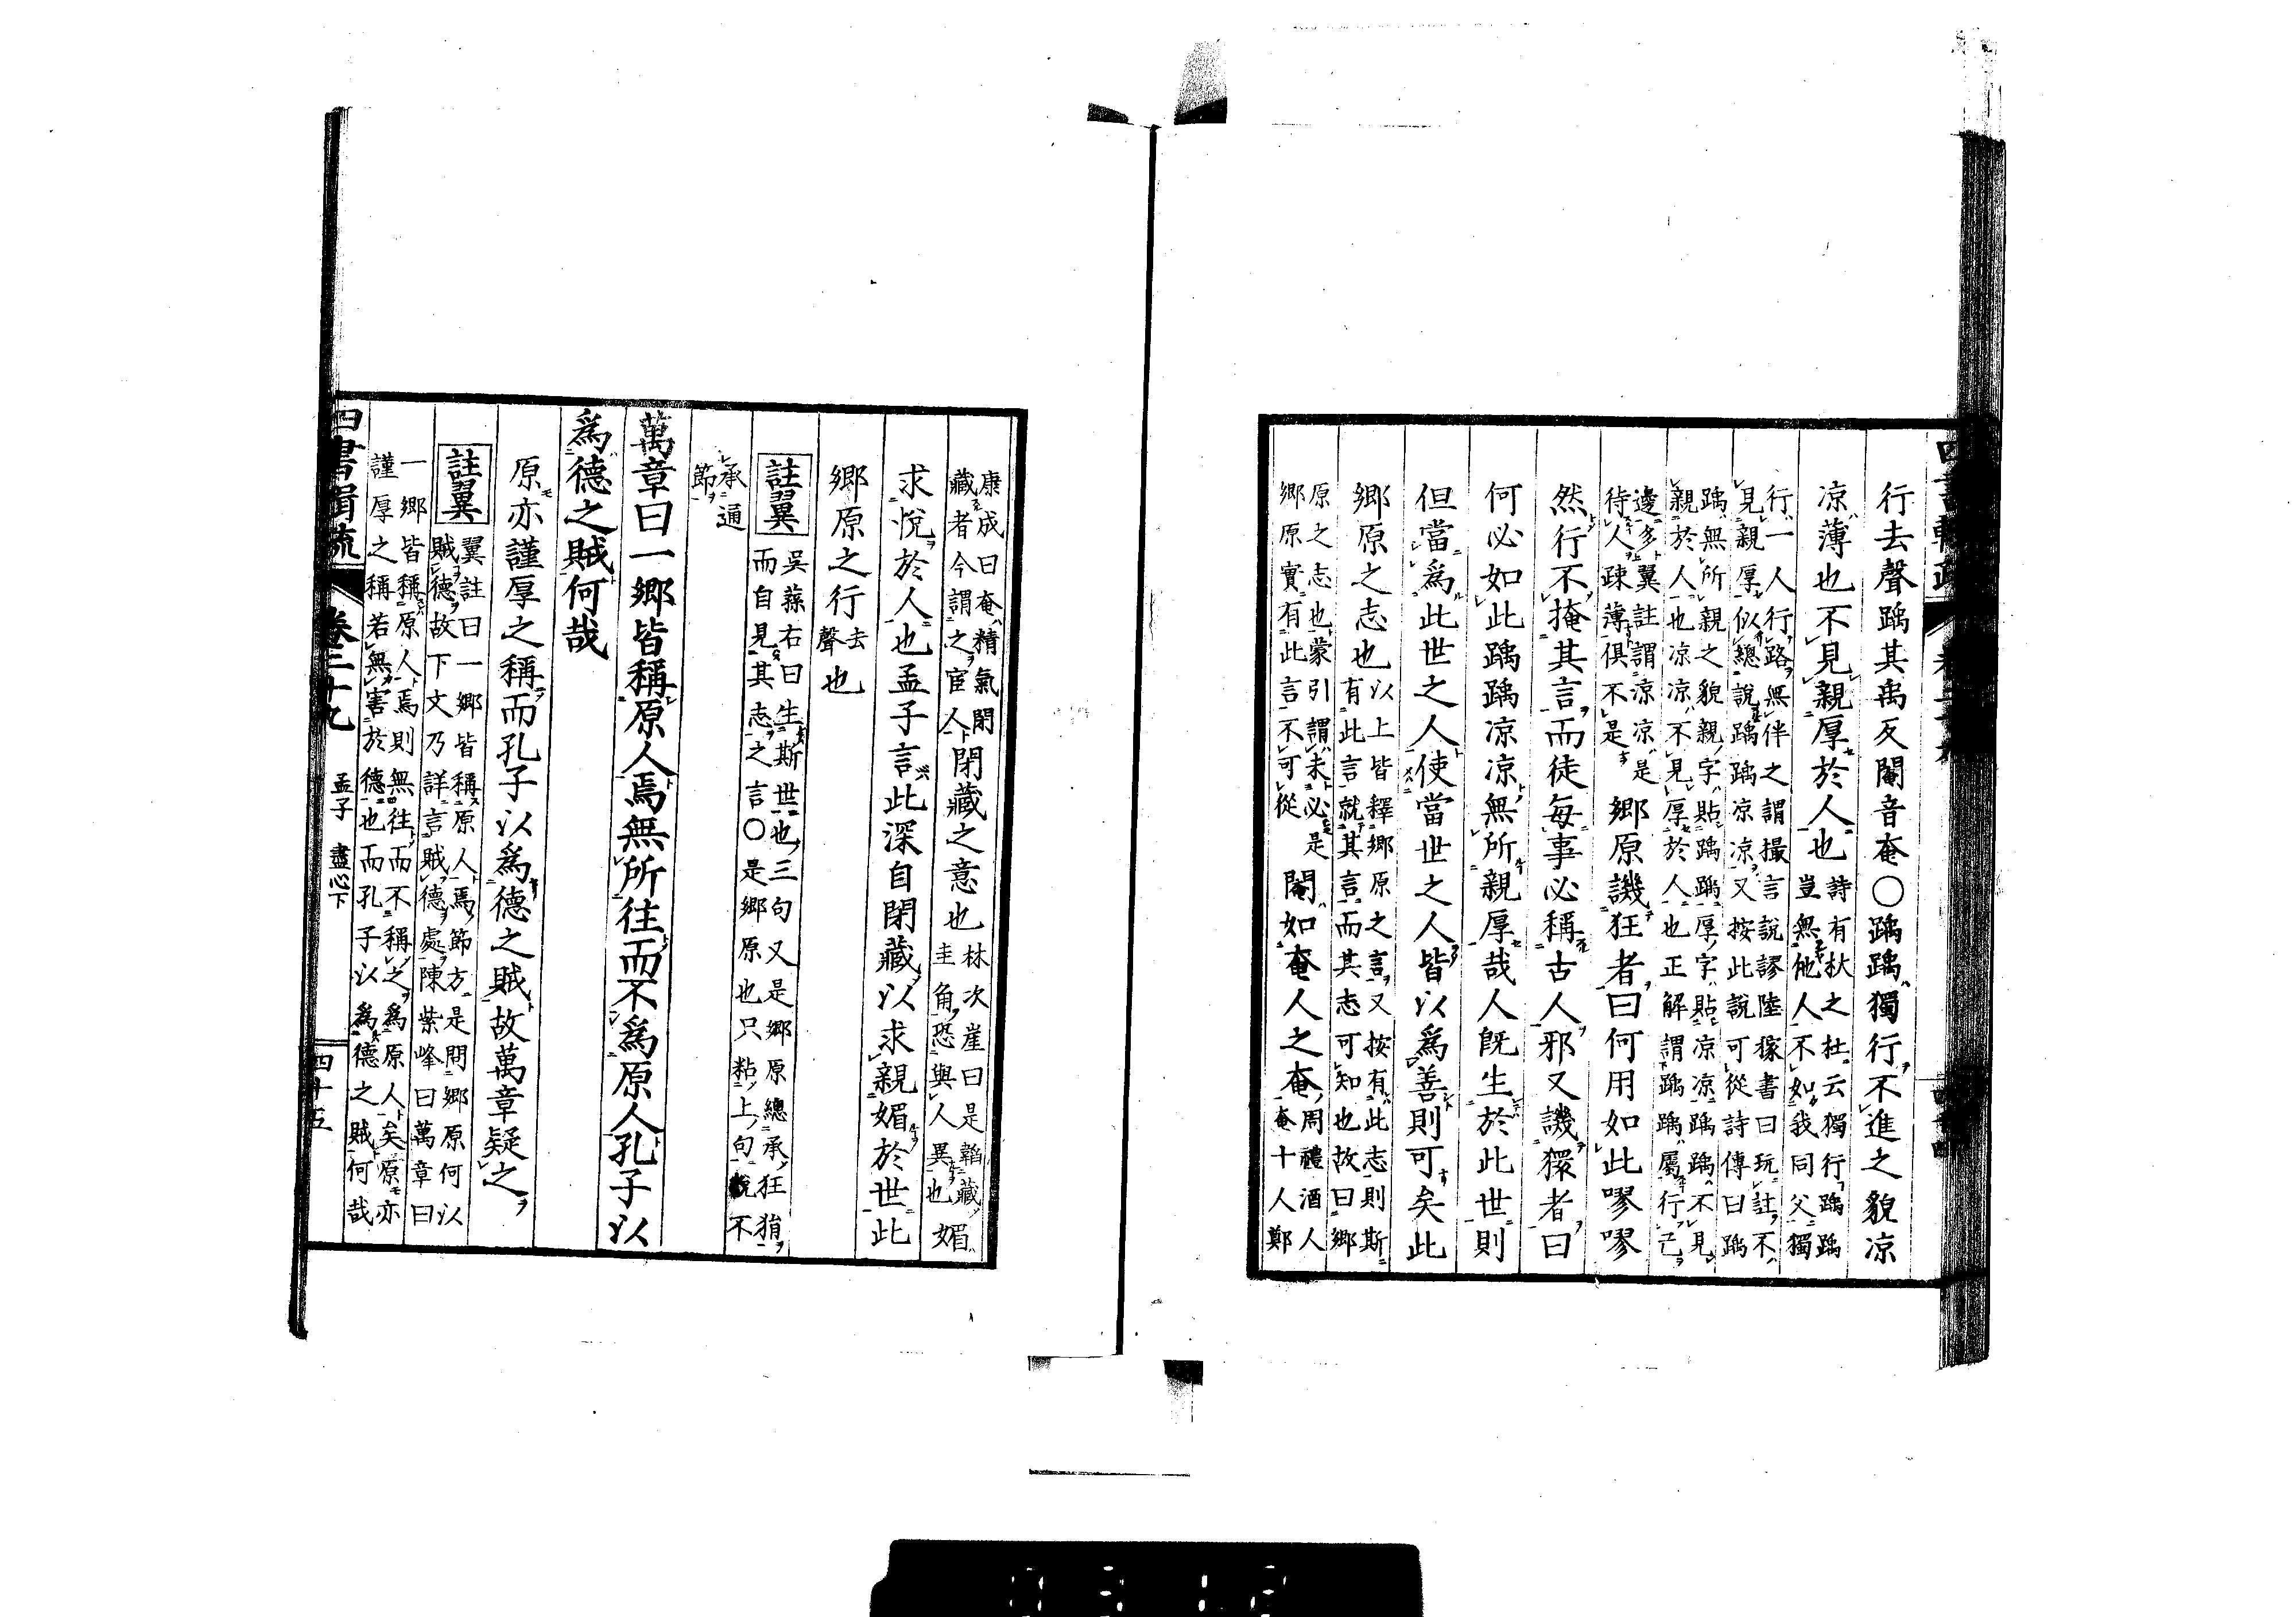 行去聲踽其禹反閹音奄○踽踽獨行不進之貌凉
凉薄也不見親厚於人也詩有杕之杜云獨行踽踽
豈無他人不如我同父獨
行一人行路無伴之謂撮言說謬陸稼書曰玩註不
見親厚似總說踽踽凉凉又按此說可從詩傳曰踽
踽無所親之貌親字貼踽踽厚字貼凉凉踽踽不見
親於人也凉凉不見厚於人也正解謂踽踽屬行己
邊多翼註謂凉凉是
待人疎薄俱不是鄉原譏狂者曰何用如此嘐嘐
然行不掩其言而徒每事必稱古人邪又譏獧者曰
何必如此踽踽凉凉無所親厚哉人旣生於此世則
但當爲此世之人使當世之人皆以爲善則可矣此
鄉原之志也以上皆釋鄉原之言又按有此志則斯
有此言就其言而其志可知也故曰鄉
原之志也蒙引謂未必是
鄉原實有此言不可從閹如奄人之奄周禮酒人
奄十人鄭
康成曰奄精氣閉
藏者今謂之宦人閉藏之意也林次崖曰是韜藏
圭角恐與人異也媚
求悅於人也孟子言此深自閉藏以求親媚於世此
鄉原之行去聲也
註翼吳蓀右曰生斯世也三句又是鄉原總承狂狷
而自見其志之言○是鄉原也只粘上句說不
承通
節
萬章曰一鄉皆稱原人焉無所往而不爲原人孔子以
爲德之賊何哉
原亦謹厚之稱而孔子以爲德之賊故萬章疑之
註翼翼註曰一鄉皆稱原人焉節方是問鄉原何以
賊德故下文乃詳言賊德處陳紫峰曰萬章曰
一鄉皆稱原人焉則無往而不稱之爲原人矣原亦
謹厚之稱若無害於德也而孔子以爲德之賊何哉
四書輯疏 卷二十九 孟子 盡心下 四十五